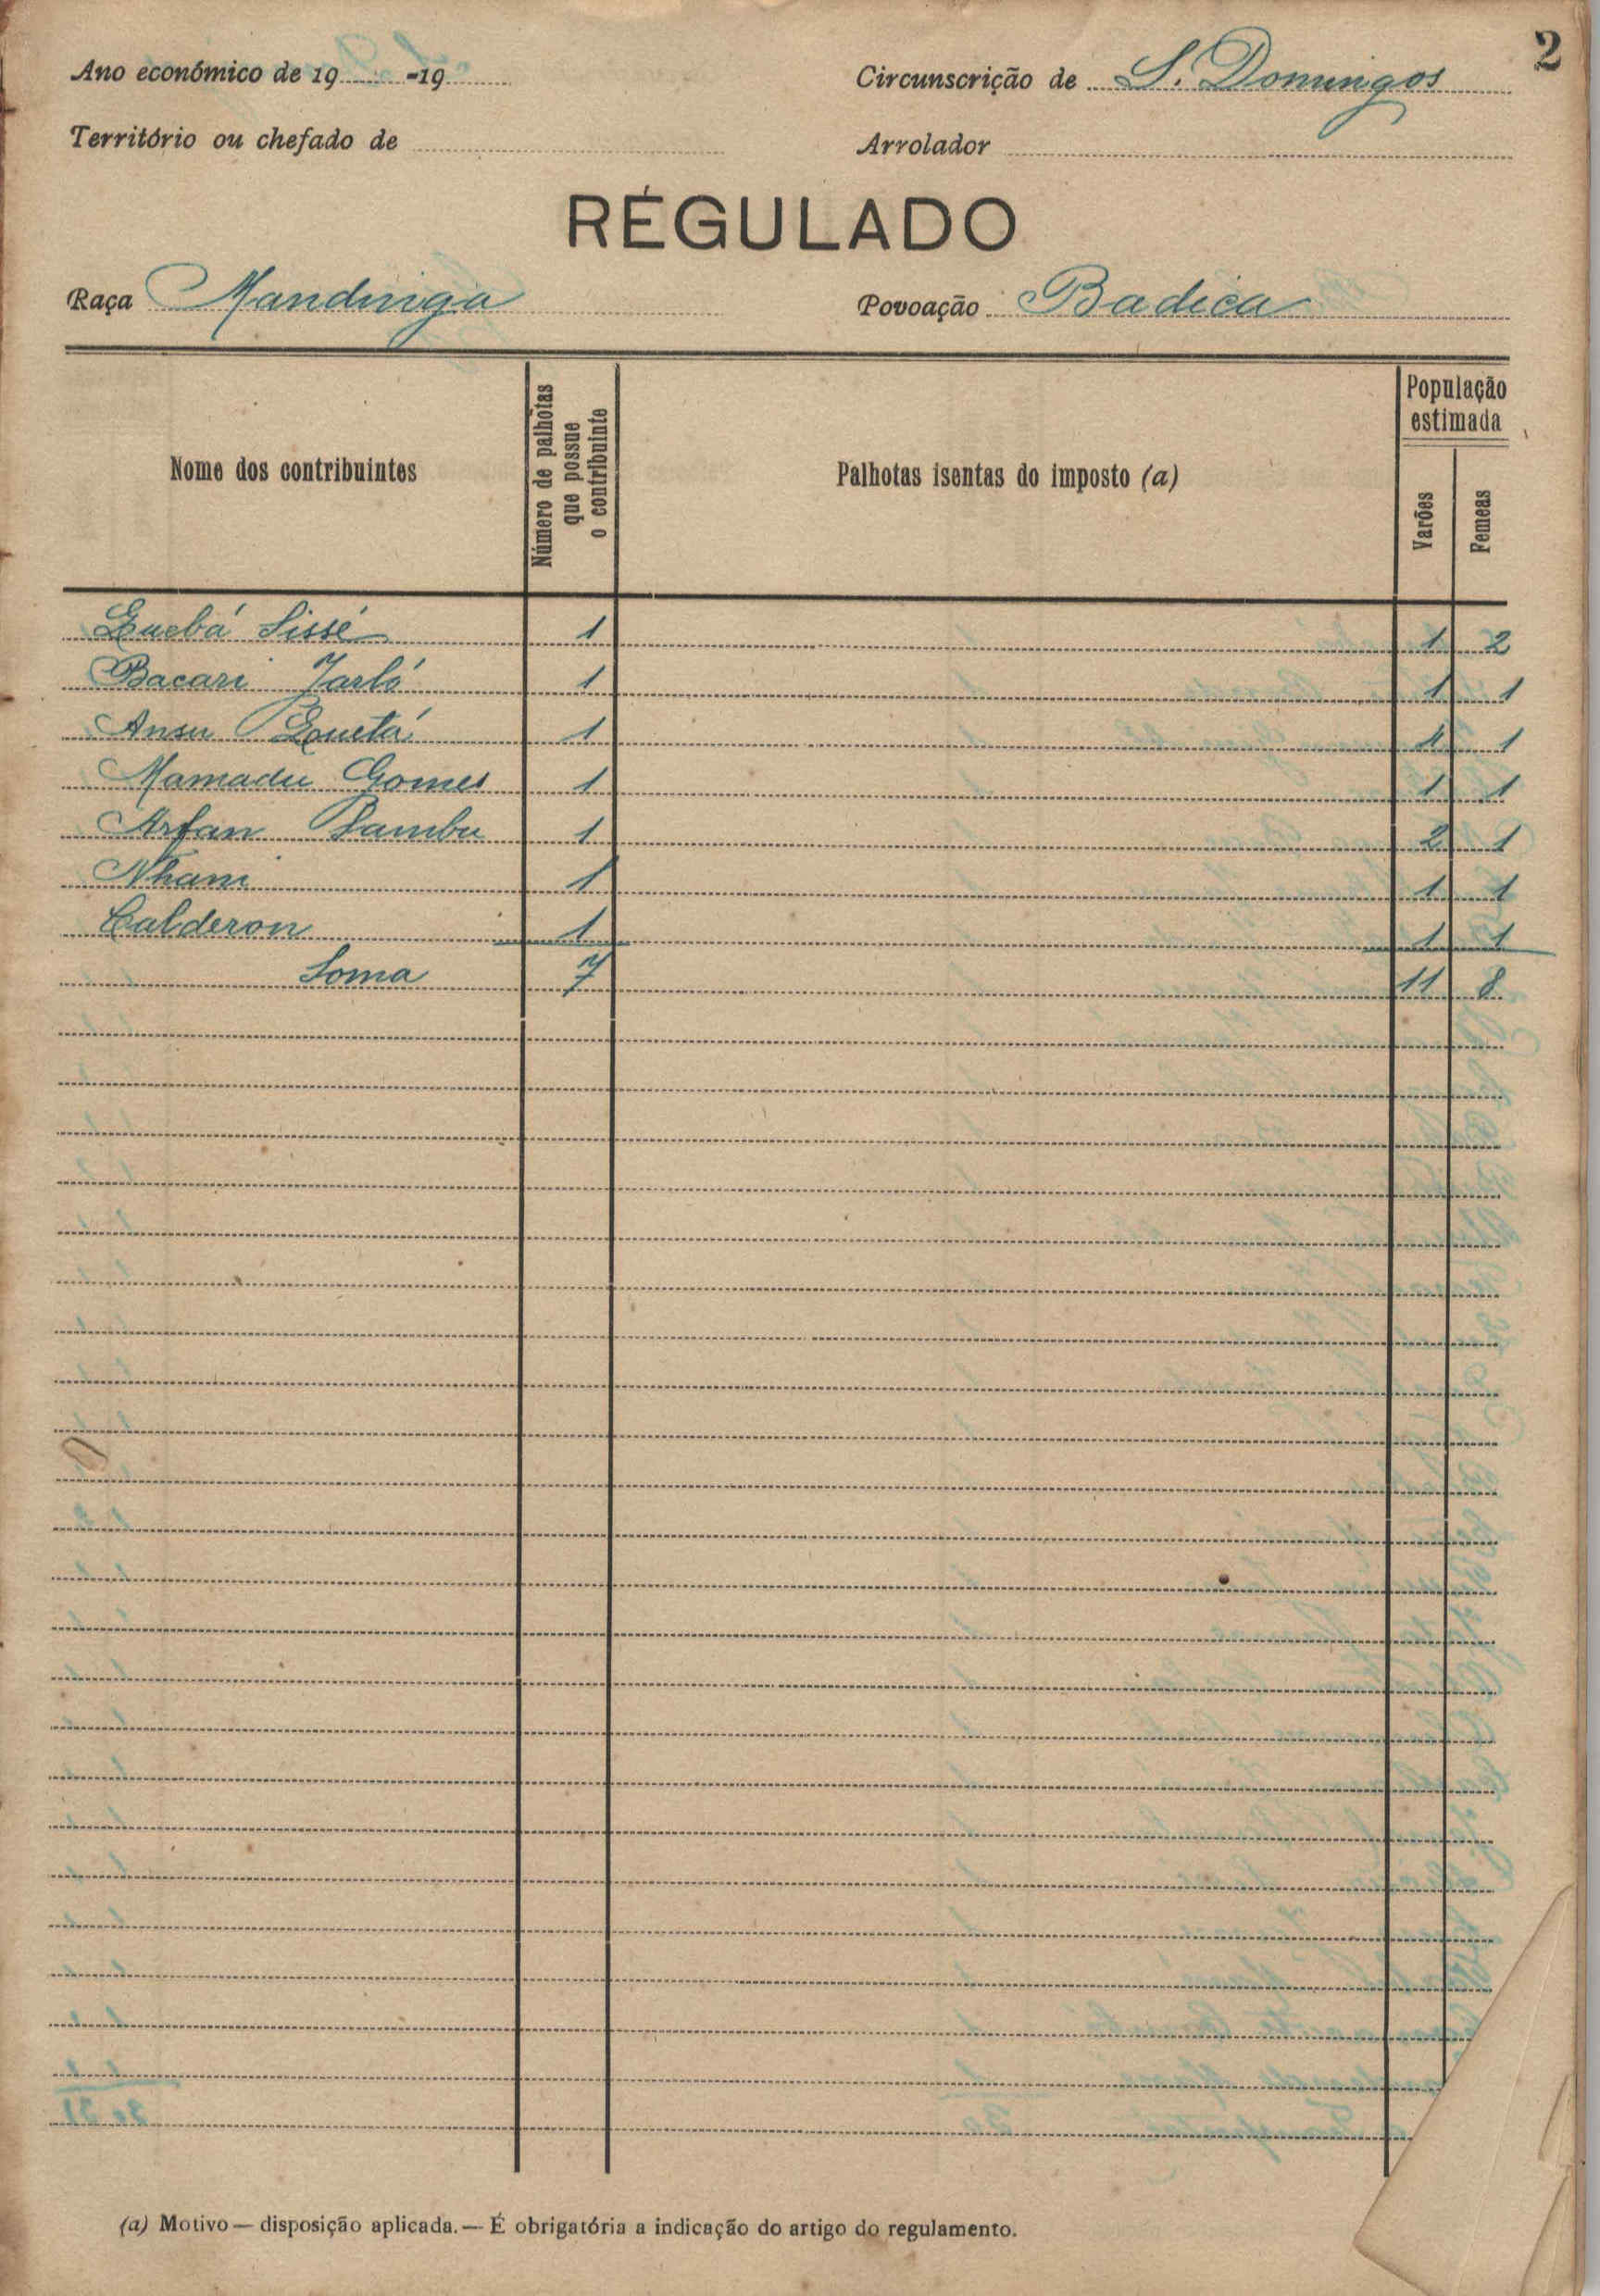 2
Ano económico de 19 -19 Circunscrição de S. Domingos
Território ou chefado de Arrolador
RÉGULADO
Raça Mandinga Povoação Badica
Nome dos contribuintes Número de palhotas que possue o contribuinte Palhotas isentas do imposto (a) População estimada Varões Femeas
Quebá Sissé 1 1 2
Bacari Jarló 1 1 1
Ansu Queta 1 4 1
Mamadu Gomes 1 1 1
Arfan Sambu 1 2 1
Nhani 1 1 1
Calderon 1 1 1
Soma 7 11 8
(a) Motivo — disposição aplicada. — É obrigatória a indicação do artigo do regulamento.